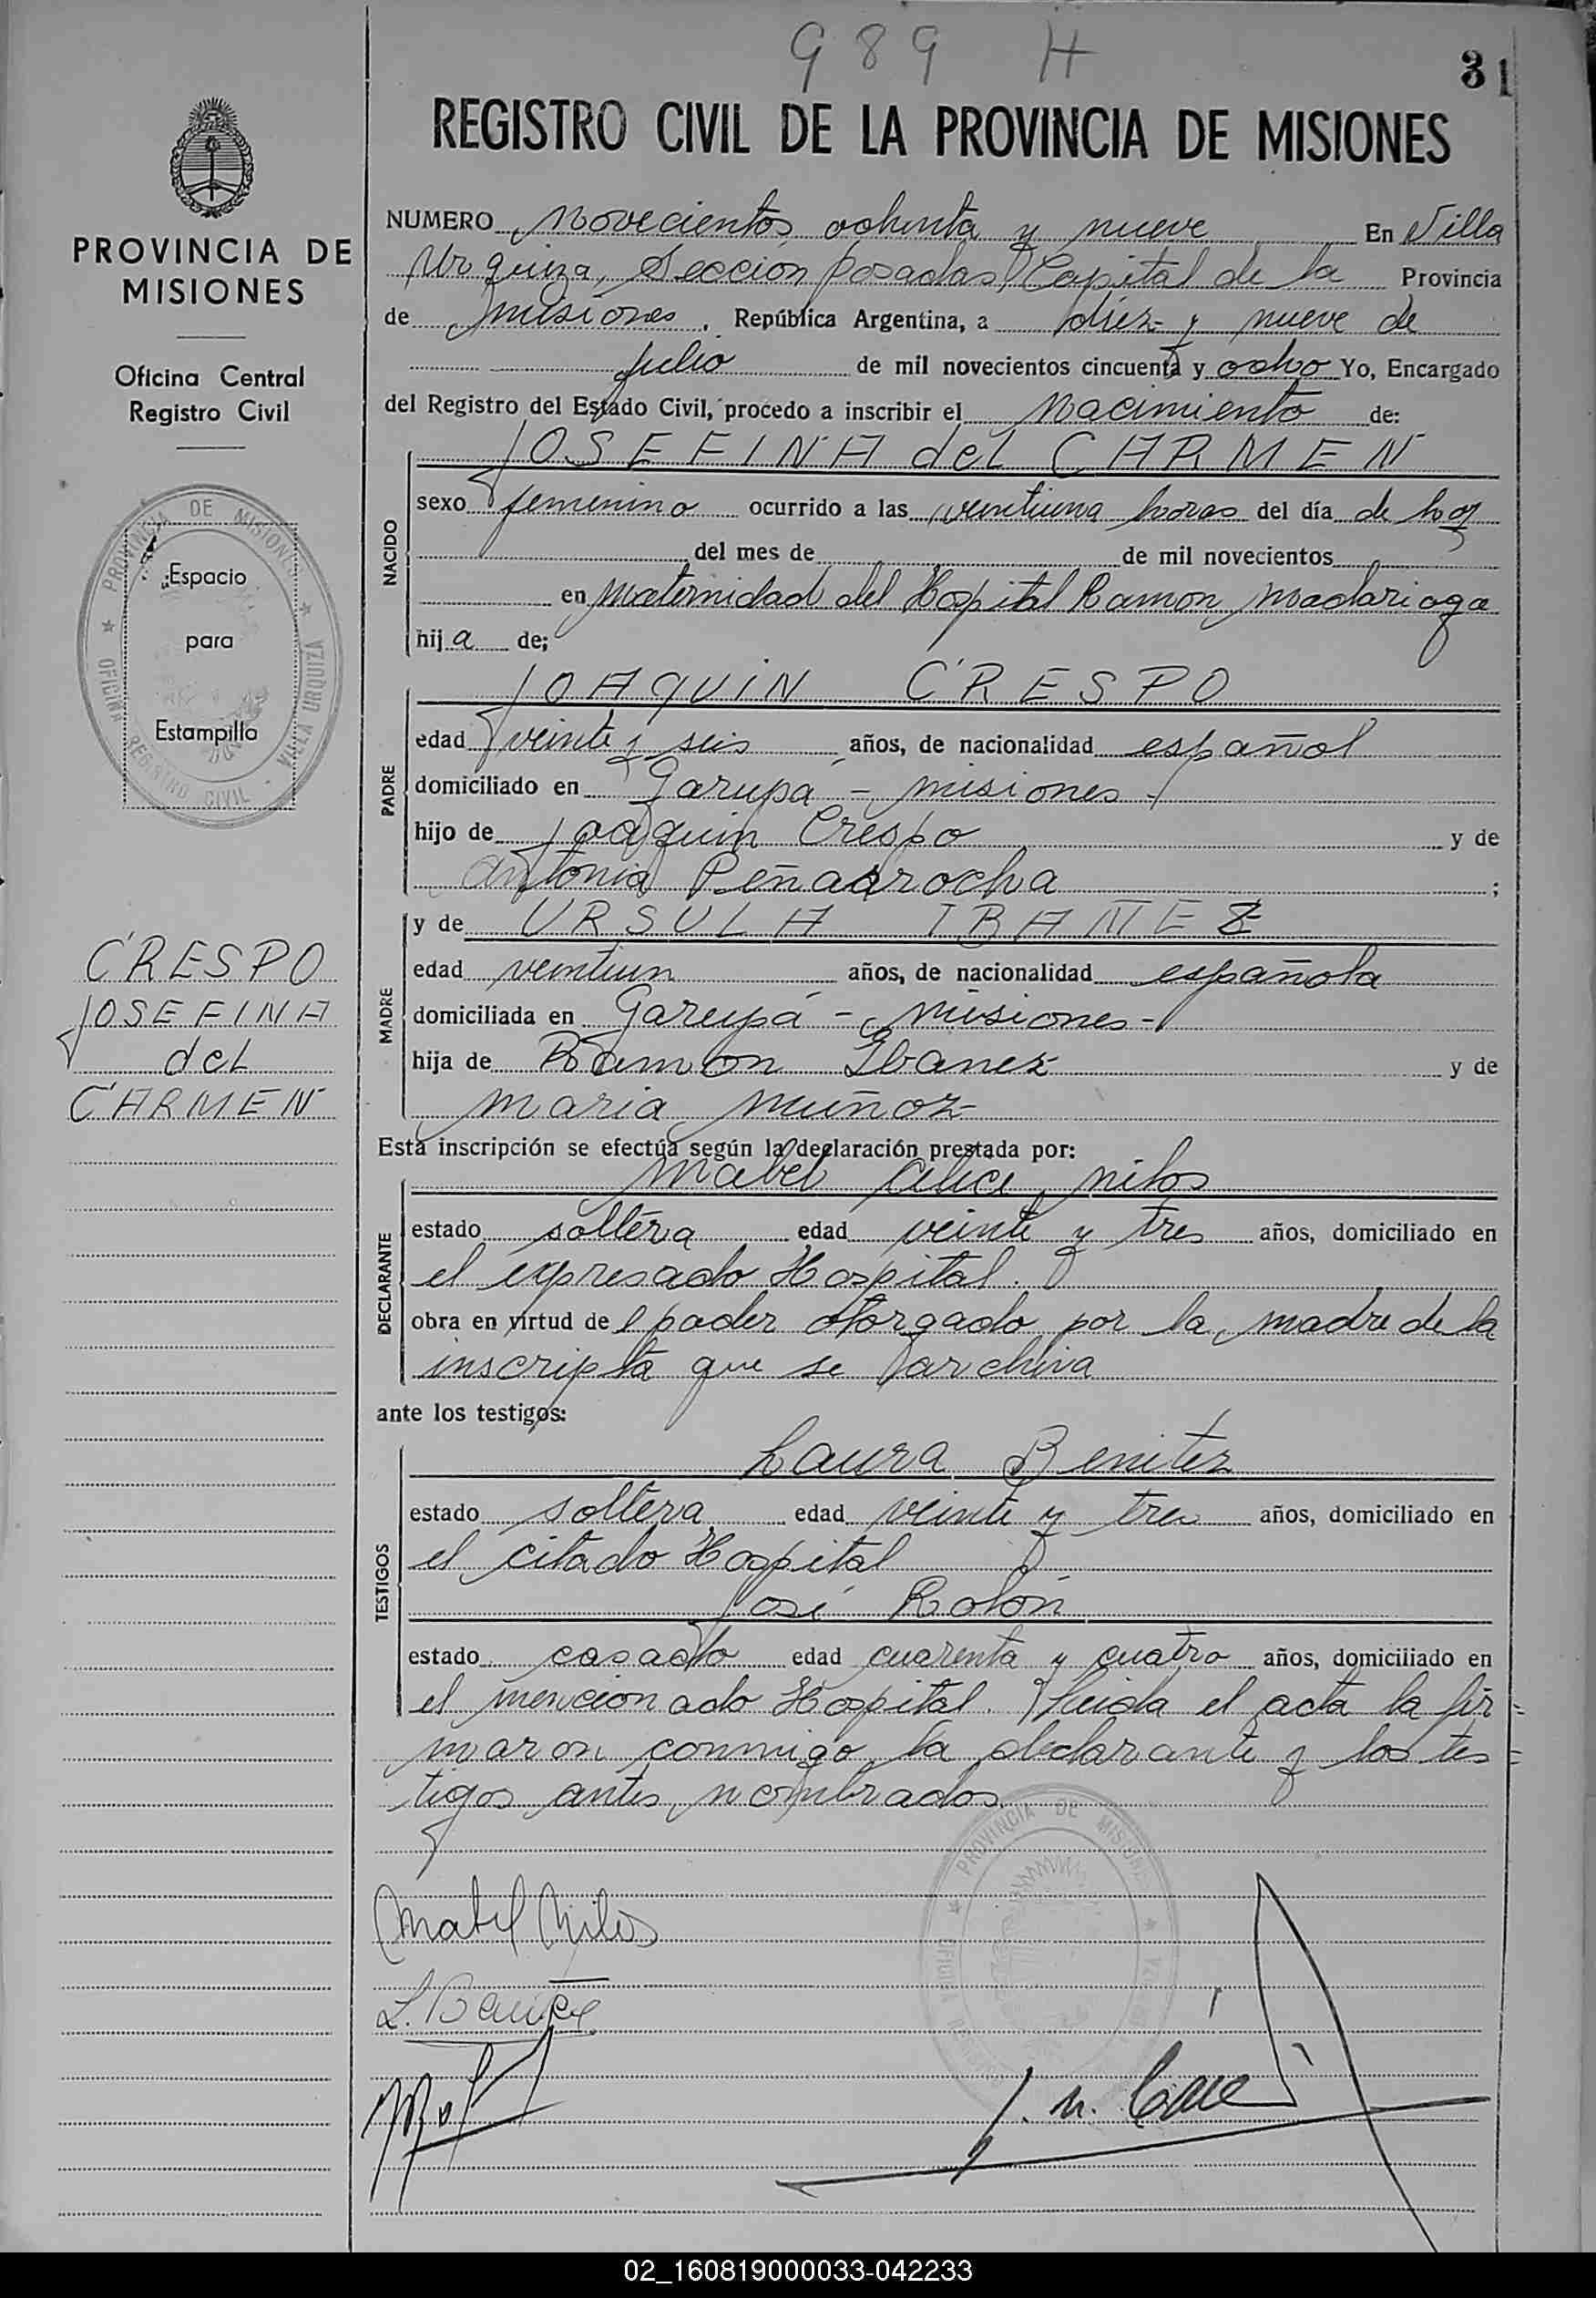 989 H
31
REGISTRO CIVIL DE LA PROVINCIA DE MISIONES
PROVINCIA DE
MISIONES
Oficina Central
Registro Civil
PROVINCIA DE MISIONES
OFICINA REGISTRO CIVIL - VILLA URQUIZA
Espacio
para
Estampilla
CRESPO
JOSEFINA
del
CARMEN
NUMERO Novecientos ochenta y nueve En Villa
Urquiza, Sección Posadas, Capital de la Provincia
de Misiones, República Argentina, a diez y nueve de
Julio de mil novecientos cincuenta y ocho Yo, Encargado
del Registro del Estado Civil, procedo a inscribir el Nacimiento de:
NACIDO
JOSEFINA del CARMEN
sexo femenino ocurrido a las veintiuna horas del día de hoy
del mes de de mil novecientos
en Maternidad del Hospital Ramon Madariaga
hija de;
PADRE
JOAQUIN CRESPO
edad veinte y seis años, de nacionalidad español
domiciliado en Garupa - Misiones -
hijo de Joaquin Crespo y de
Antonia Peñaarrocha ;
MADRE
y de URSULA IBAÑEZ
edad veintiun años, de nacionalidad española
domiciliada en Garupá - Misiones -
hija de Ramón Ibanez y de
Maria Muñoz
Esta inscripción se efectúa según la declaración prestada por:
DECLARANTE
Mabel Alice Nilos
estado soltera edad veinte y tres años, domiciliado en
el expresado Hospital.
obra en virtud del poder otorgado por la madre de la
inscripta que se archiva
ante los testigos:
TESTIGOS
Laura Benitez
estado soltera edad veinte y tres años, domiciliado en
el citado Hospital
José Rolón
estado casado edad cuarenta y cuatro años, domiciliado en
el mencionado Hospital. Leida el acta la fir=
maron conmigo la declarante y los tes=
tigos antes nombrados.
Mabel Nilos
PROVINCIA DE MISIONES
L. Benitez
J. N.
02_160819000033-042233